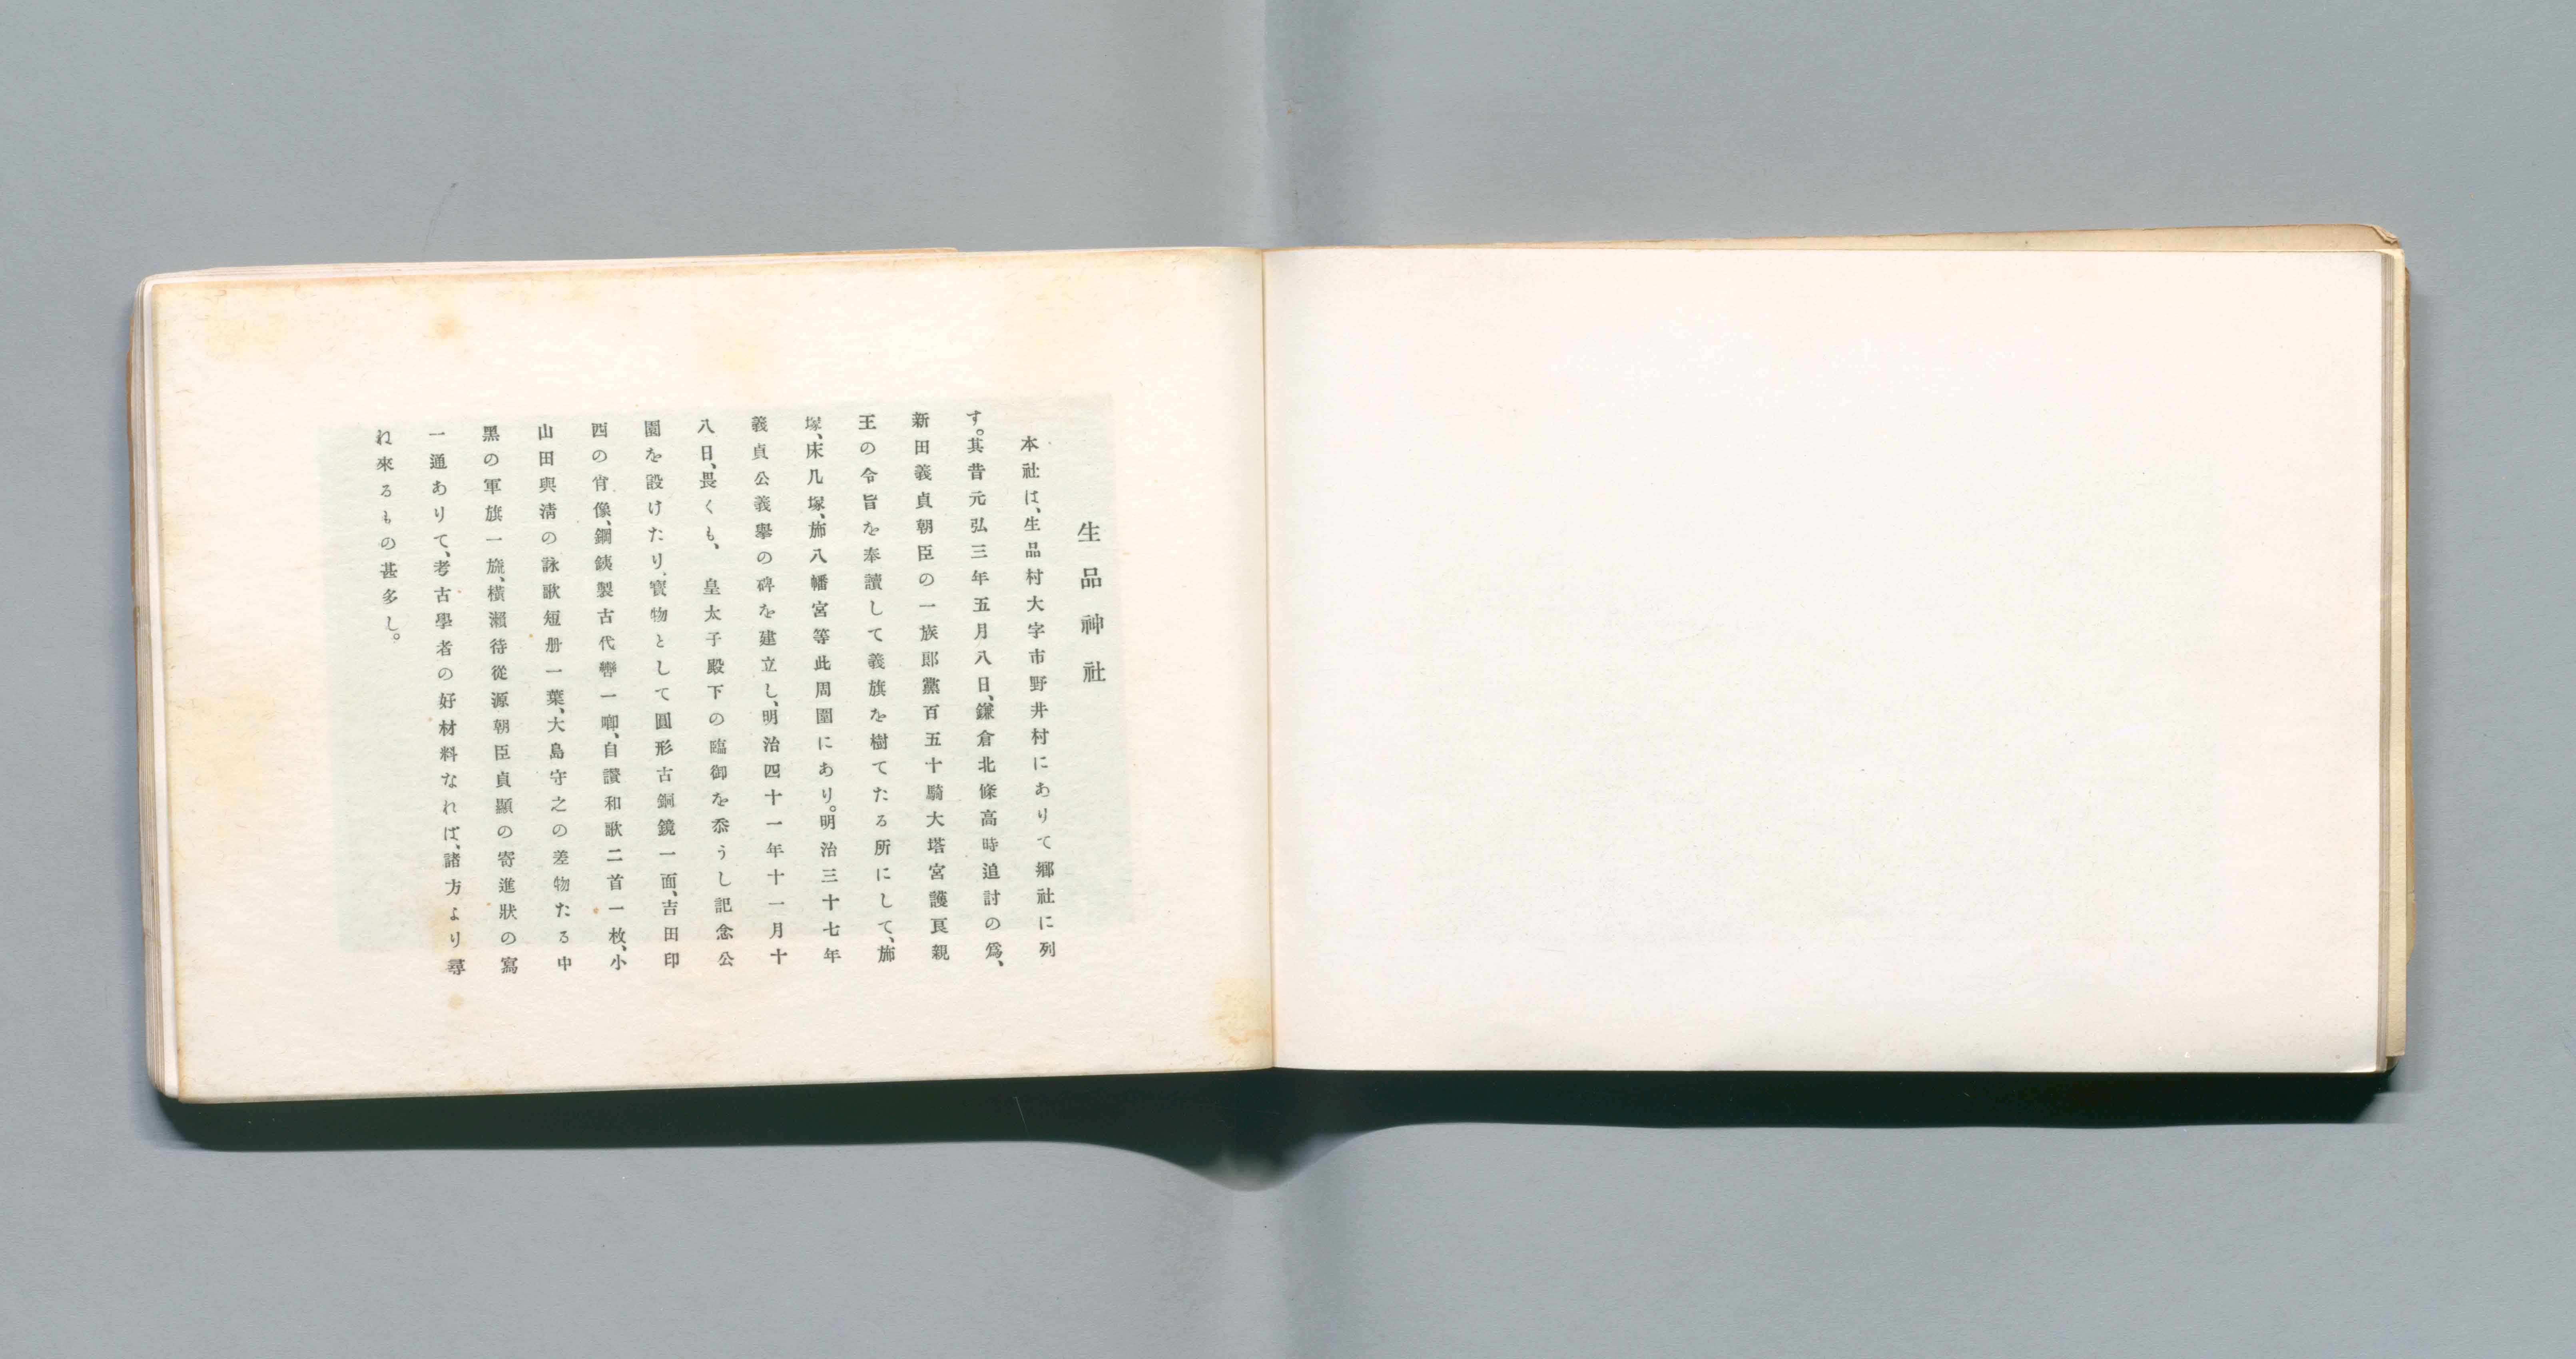 生品神社
本社は、生品村大字市野井村にありて郷社に列
す。其昔元弘三年五月八日、鎌倉北條高時追討の爲、
新田義貞朝臣の一族郎黨百五十騎大塔宮護良親
王の令旨を奉讀して義旗を樹てたる所にして、旆
塚、床几塚、旆八幡宮等此周圍にあり。明治三十七年
義貞公義擧の碑を建立し、明治四十一年十一月十
八日、畏くも、 皇太子殿下の臨御を忝うし記念公
園を設けたり、寶物として圓形古銅鏡一面、吉田印
西の肖像、鋼鐵製古代轡一啣、自讃和歌二首一枚、小
山田與淸の詠歌短册一葉、大島守之の差物たる中
黑の軍旗一旒、橫瀨待從源朝臣貞顯の寄進狀の寫
一通ありて、考古學者の好材料なれば、諸方より尋
ね來るもの甚多し。